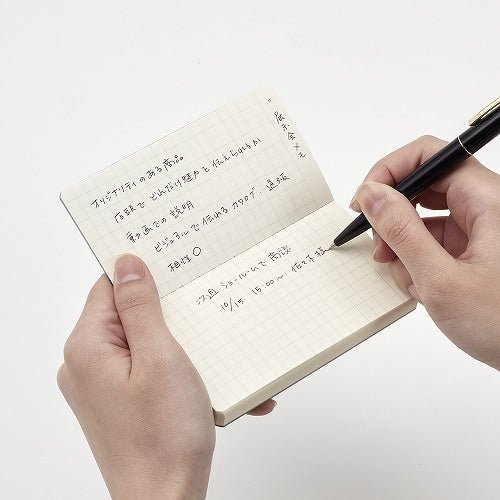 展示会メモ
オリジナリティのある商品
店頭でどれだけ魅力を伝えられるか
動画での説明
ビジュアルで伝わるカタログ・通販
相性〇
次週 ショールームで商談
10/15 15:00〜 佐々木様